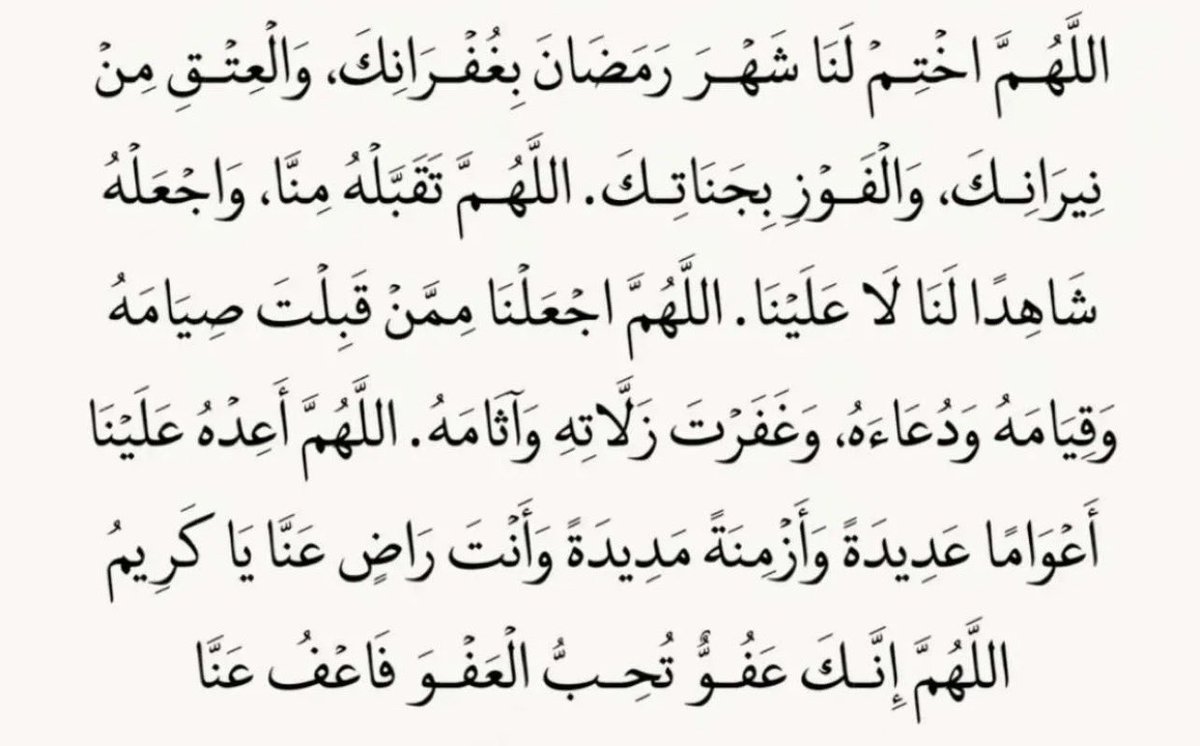 اللَّهُمَّ اخْتِمْ لَنَا شَهْرَ رَمَضَانَ بِغُفْرَانِكَ، وَالْعِتْقِ مِنْ
نِيرَانِكَ، وَالْفَوْزِ بِجَنَاتِكَ. اللَّهُمَّ تَقَبَّلْهُ مِنَّا، وَاجْعَلْهُ
شَاهِدًا لَنَا لَا عَلَيْنَا. اللَّهُمَّ اجْعَلْنَا مِمَّنْ قَبِلْتَ صِيَامَهُ
وَقِيَامَهُ وَدُعَاءَهُ، وَغَفَرْتَ زَلَّاتِهِ وَآثَامَهُ. اللَّهُمَّ أَعِدْهُ عَلَيْنَا
أَعْوَامًا عَدِيدَةً وَأَزْمِنَةً مَدِيدَةً وَأَنْتَ رَاضٍ عَنَّا يَا كَرِيمُ
اللَّهُمَّ إِنَّكَ عَفُوٌّ تُحِبُّ الْعَفْوَ فَاعْفُ عَنَّا